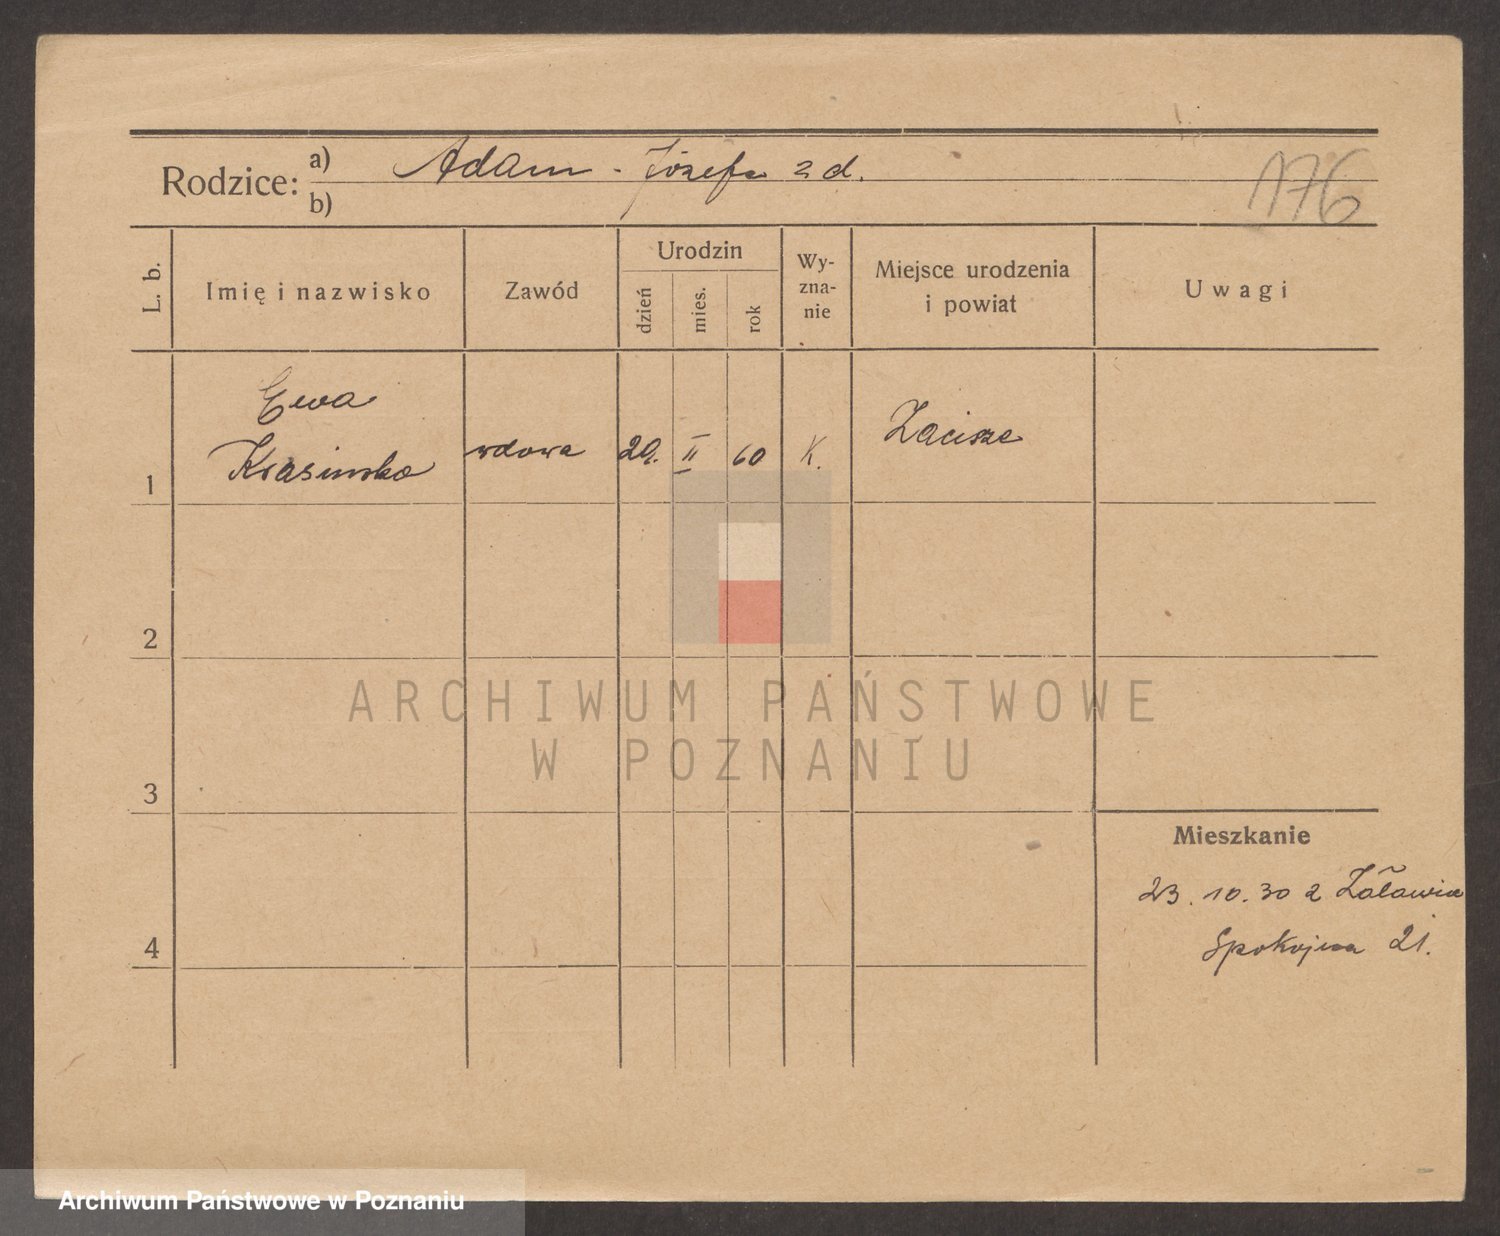 Rodzice:
a) Adam - Józefa z d.
b)
176
L. b.
Imię i nazwisko
Zawód
Urodzin
dzień
mies.
rok
Wy-
zna-
nie
Miejsce urodzenia
i powiat
Uwagi
Ewa
Krasinska
wdowa
29.
II
60
K.
Zacisze
1
2
3
4
Mieszkanie
23. 10. 30 z
Spokojna 21.
ARCHIWUM PAŃSTWOWE
W POZNANIU
Archiwum Państwowe w Poznaniu